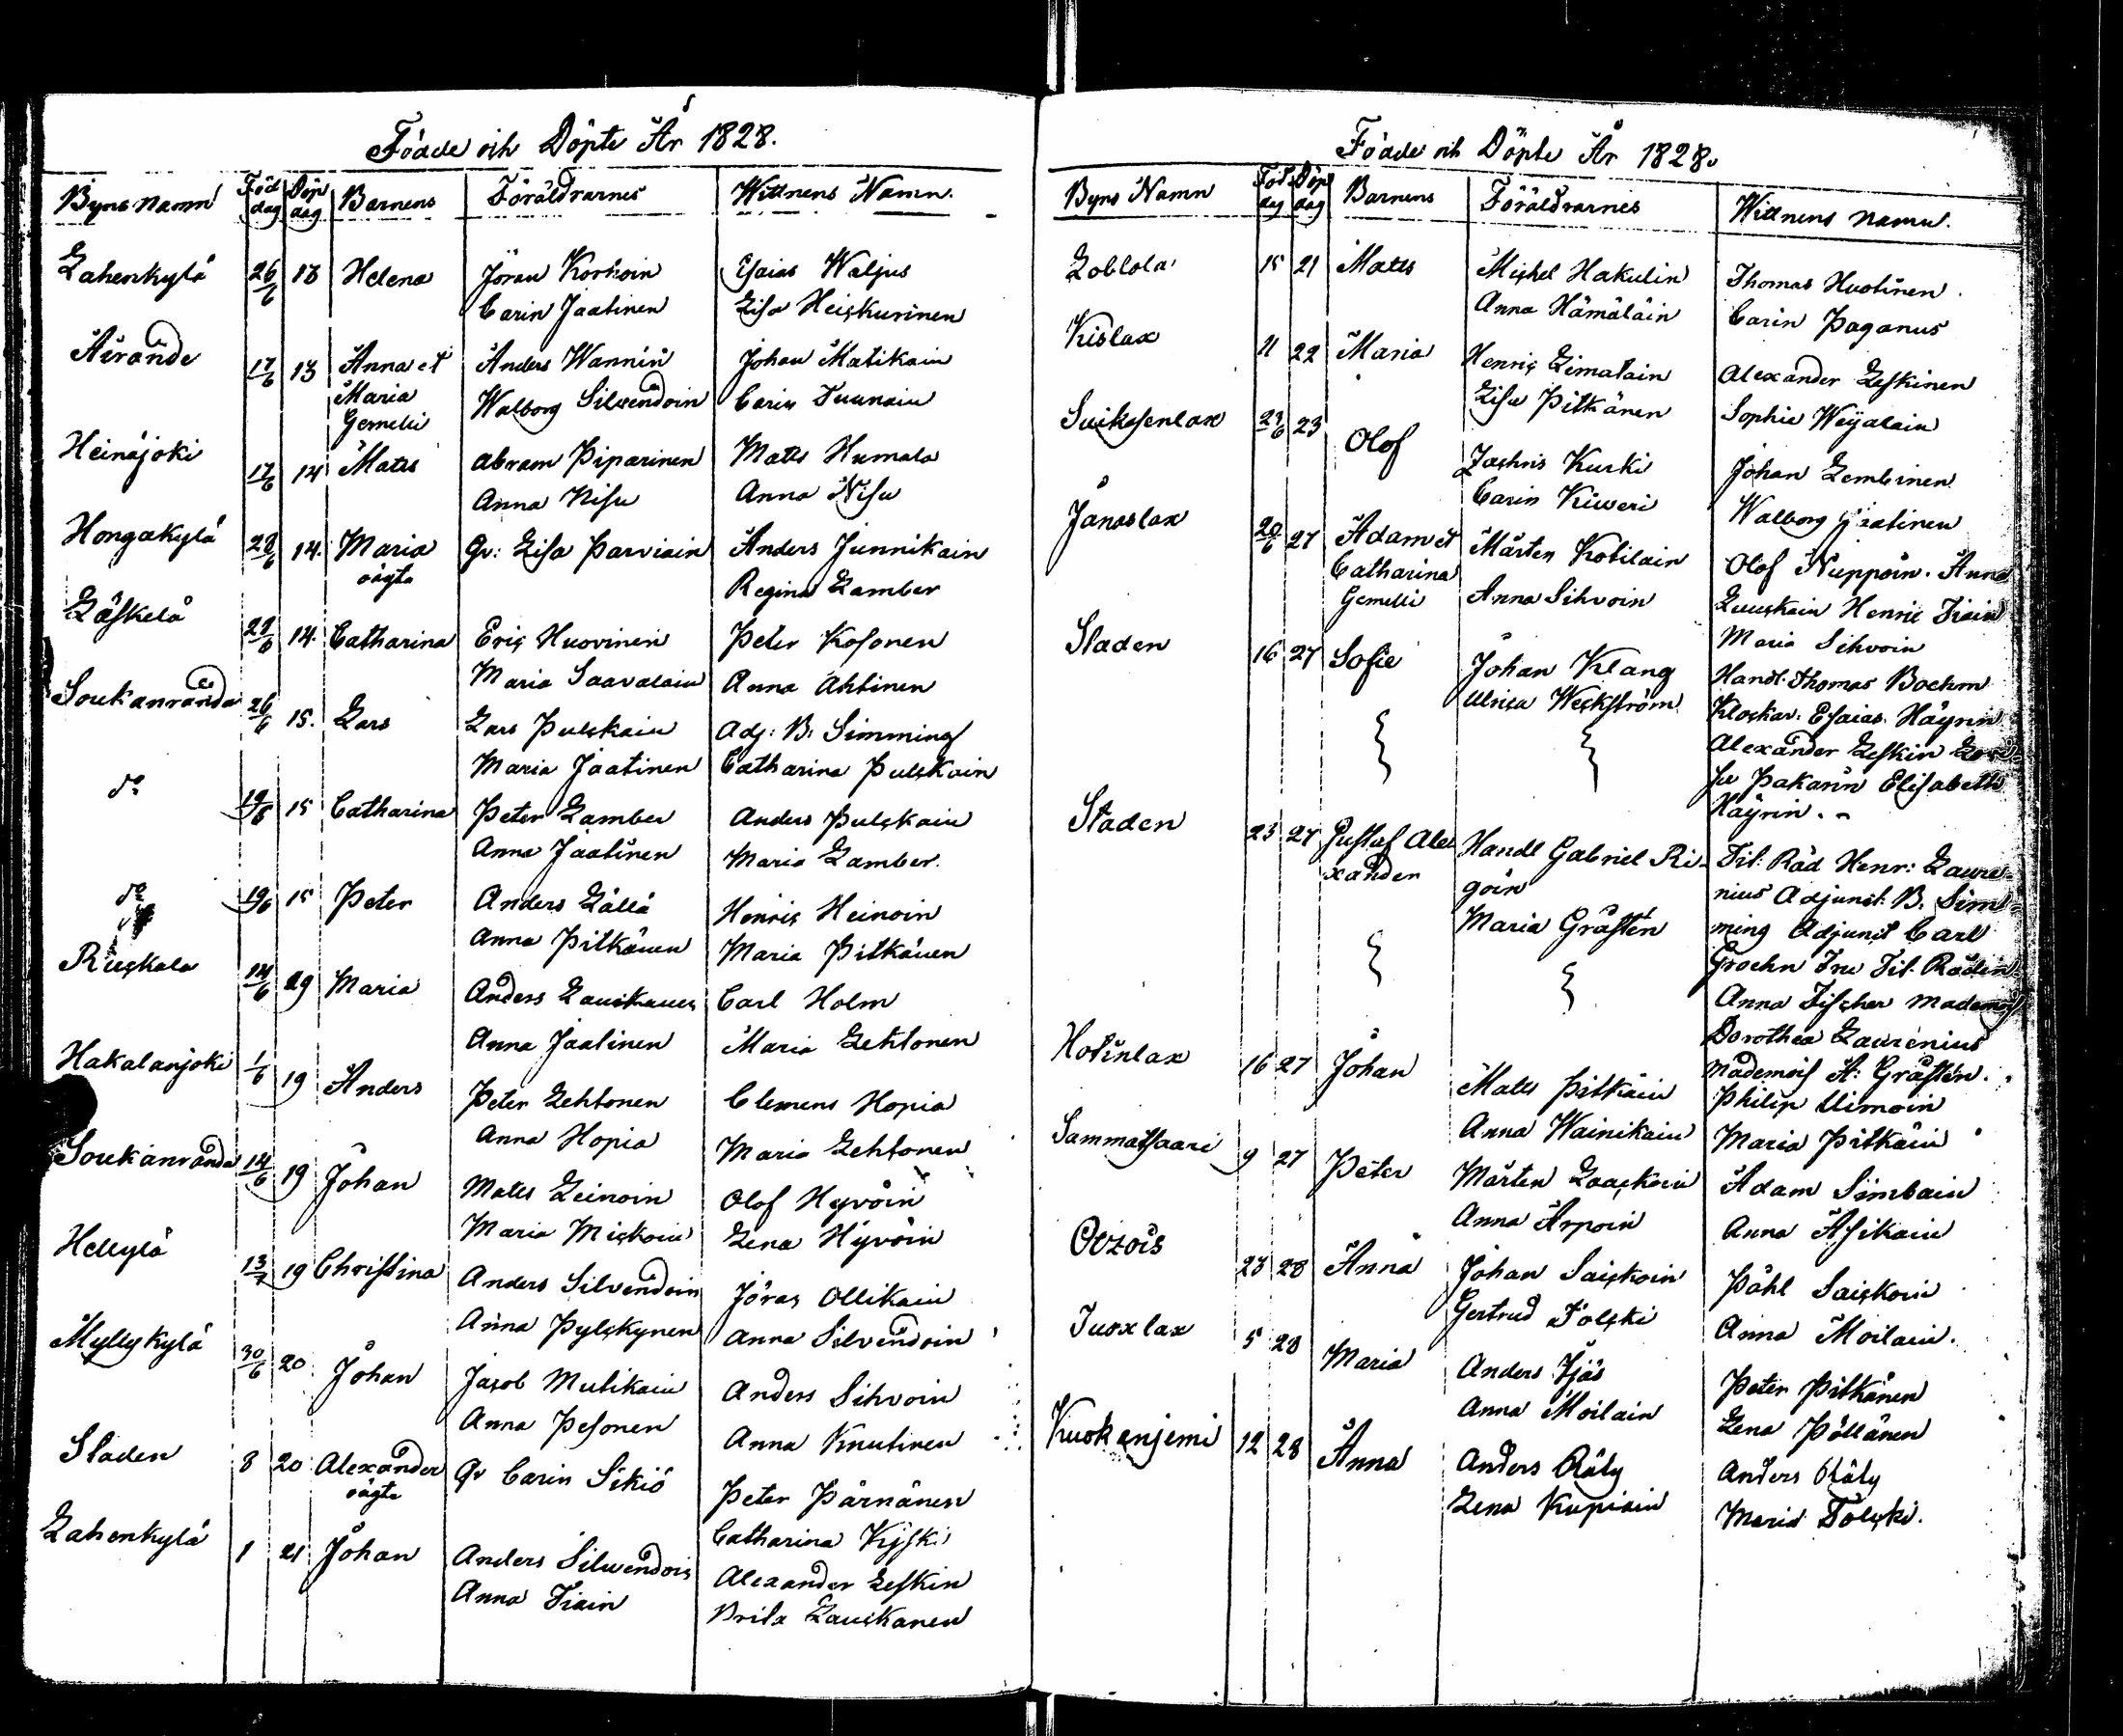 Födde och Döpte År 1828.
Byns namn Föd dag Döp dag Barnens Föräldrarnes Wittnens Namn.
Lahenkylä 26/6 13 Helena Jöran Korhoin Esaias Waljus
Carin Jaatinen Lisa Heiskurinen
Äirände 17/6 13 Anna et Anders Wannin Johan Matikain
Maria Walborg Silvendoin Carin Tuunain
Gemelli
Heinäjoki 17/6 14 Matts Abram Piparinen Matts Humala
Anna Nisu Anna Nisu
Hongakylä 28/6 14. Maria Qv: Lisa Parviain Anders Junnikain
oägta Regina Lamber
Läskelä 29/6 14. Catharina Eric Huovinen Peter Kosonen
Maria Saavalain Anna Ahtinen
Soukanranda 26/6 15. Lars Lars Pulckain Adj: B: Simming
Maria Jaatinen Catharina Pulckain
do 19/6 15 Catharina Peter Lamber Anders Pulckain
Anna Jaatinen Maria Lamber.
do 19/6 15 Peter Anders Lällä Henric Heinoin
Anna Pitkänen Maria Pitkänen
Ruskala 14/6 19 Maria Anders Lauckanen Carl Holm
Anna Jaatinen Maria Lehtonen
Hakalanjoki 1/6 19 Anders Peter Lehtonen Clemens Hopia
Anna Hopia Maria Lehtonen
Soukanranda 14/6 19 Johan Matts Leinoin Olof Hyvöin
Maria Mickoin Lena Hyvöin
Hellylä 13/7 19 Christina Anders Silvendoin Jöran Ollikain
Anna Pylckynen Anna Silvendoin
Myllykylä 30/6 20 Johan Jacob Mutikain Anders Sihvoin
Anna Pesonen Anna Knutinen
Staden 8 20 Alexander Qv Carin Sikiö Peter Pärnänen
oägta Catharina Kyski
Lahenkylä 1 21 Johan Anders Silwendoin Alexander Leskin
Anna Tiain Brita Lauckanen
Födde och Döpte År 1828.
Byns Namn Föd dag Döp dag Barnens Föräldrarnes Wittnens namn.
Loblola 15 21 Matts Michel Hakulin Thomas Huotinen
Anna Hämäläin Carin Paganus
Kislax 11 22 Maria Henric Limatain Alexander Leskinen
Lisa Pitkänen Sophia Weijalain
Suiksenlax 23/6 23 Olof Zachris Kurki Johan Lembinen
Carin Kiweri Walborg Jaatinen
Janaslax 20/6 27 Adam et Mårten Kotilain Olof Nuppoin. Anna
Catharina Anna Sihvoin Luuckain Henric Tiain
Gemelli Maria Sihvoin
Staden 16 27 Sofie Johan Klang Handl. Thomas Boehm
Ulrica Weckström Klockar. Esaias Häyrin
Alexander Leskin
Pakarin Elisabeth
Häyrin.
Staden 23 27 Gustaf Ale- Handl Gabriel Ri- Tit: Råd Henr: Laure-
xander goin nius Adjunct: B. Sim-
Maria Gråsten ming Adjunct Carl
Groehn Fru Tit. Rådin
Anna Fischer Mademois
Dorothea Laurenius
Mademois A: Gråstén.
Hotinlax 16 27 Johan Matts Pitkäin Philip Uimoin
Anna Wainikain Maria Pitkäin
Sammatsaari 9 27 Peter Mårten Laackoin Adam Simbain
Anna Arpoin Anna Asikain
Orzois 23 28 Anna Johan Saickoin Påhl Saickoin
Gertrud Tolcki Anna Moilain.
Tuoxlax 5 28 Maria Anders Yjäs Peter Pitkänen
Anna Moilain Lena Pöllänen
Kuokanjemi 12 28 Anna Anders Räty Anders Räty
Lena Kupiain Maria Tolcki.